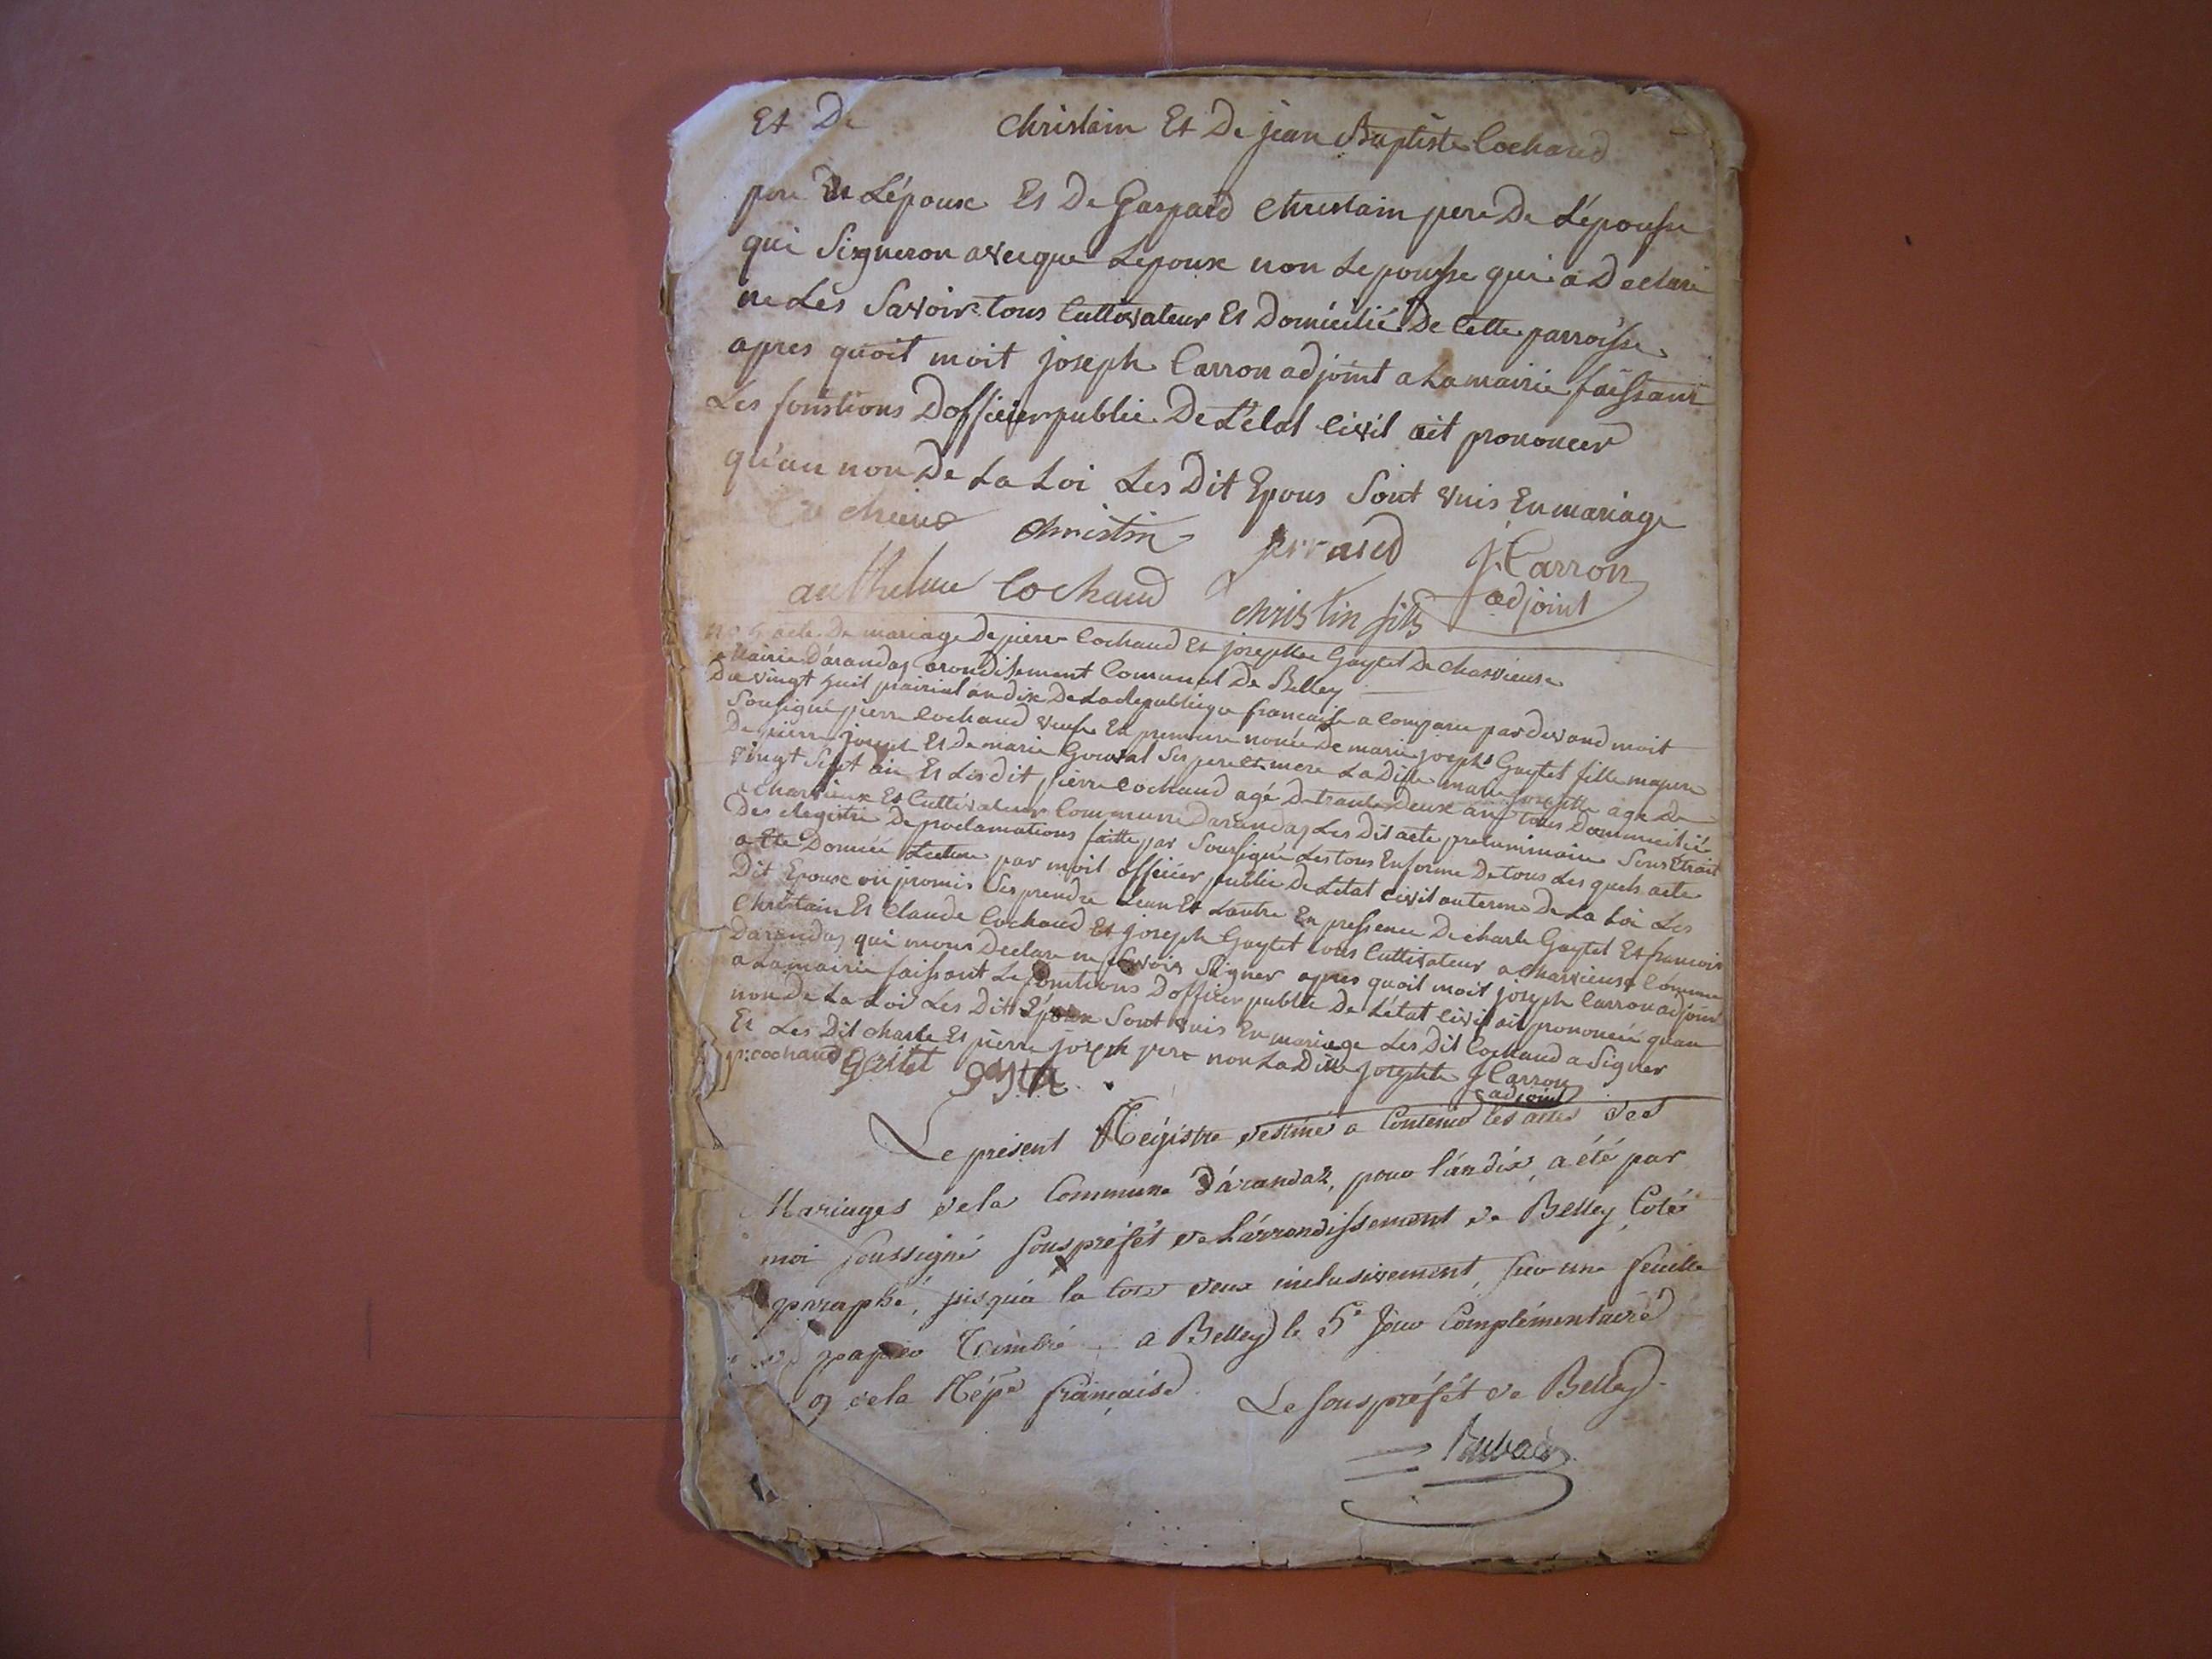 Et De christain Et De jean Baptiste Cochaud
pere De L'époux Et De Gaspard christain pere De L'épousse
qui Signeron avecque Lepoux non Lepousse qui a Declaré
ne Lès Savoir tous Cultivateur Et Domicilié De Cette parroisse
apres quoit moit joseph Carron adjoint a La mairie faissant
Les fonstions D'officier public De L'état Civil ait prononcer
qu'au non De La Loi Les Dit Epous Sont unis En mariage
christin perraud J. Carron
anthelme Cochaud christin fils adjoint
acte De mariage De pierre Cochaud Et josephte Gaytet De charvieuse
Mairie D'arandas arondissement Comunal De Belley
Du vingt huit prairial an dix De La Republique francaise a Comparu par devand moit
Sousigné pierre Cochaud veufe En premiere nonce De marie joseph Gaytet fille majeure
De pierre joseph Et De marie Gouvat Ses pere et mere La Ditte marie josephte agé De
vingt Sept an Et Les dit pierre Cochaud agé De trante Deux ans tous Dommicilié
a Charvieux Et Cultivateur Commune Darandas Les Dit acte preliminaire Sous Etrait
Des Registre De proclamations faitte par Sousigné Les tous En forme De tous Les quels acte
a Ete Donnée Lecture par moit officier public De Letat Civil au terme De La Loi Les
Dit Epoux on promis Ses prendre Lun Et Lautre En pressence De charle Gaytet Et francois
Christain Et Claude Cochaud Et joseph Gaytet tous Cultivateur a Charvieux Commune
Darandas qui mons Declare ne Savoir Signer apres quoit moit joseph Carron adjoint
a La mairie faissant Le fonstions D'officier public De L'état Civil ait prononcée quau
non De La Loi Les Dit Époux Sont unis En mariage Les Dit Cochaud a Signer
Et Les Dit charle Et pierre joseph pere non La Ditte josephte J Carron
p: cochaud Geitet adjoint
Le présent Régistre destiné a Contenir les actes des
Mariages de la Commune d'árandas, pour l'an dix, a été par
moi soussigné souspréfét de L'arrondissement de Belley, Coté
paraphé, jusqu'a la Cote deux inclusivement, sur une feuille
papier Timbré. a Belley le 5e jour Complémentaire
9 de la Répe française. Le souspréfét de Belley.